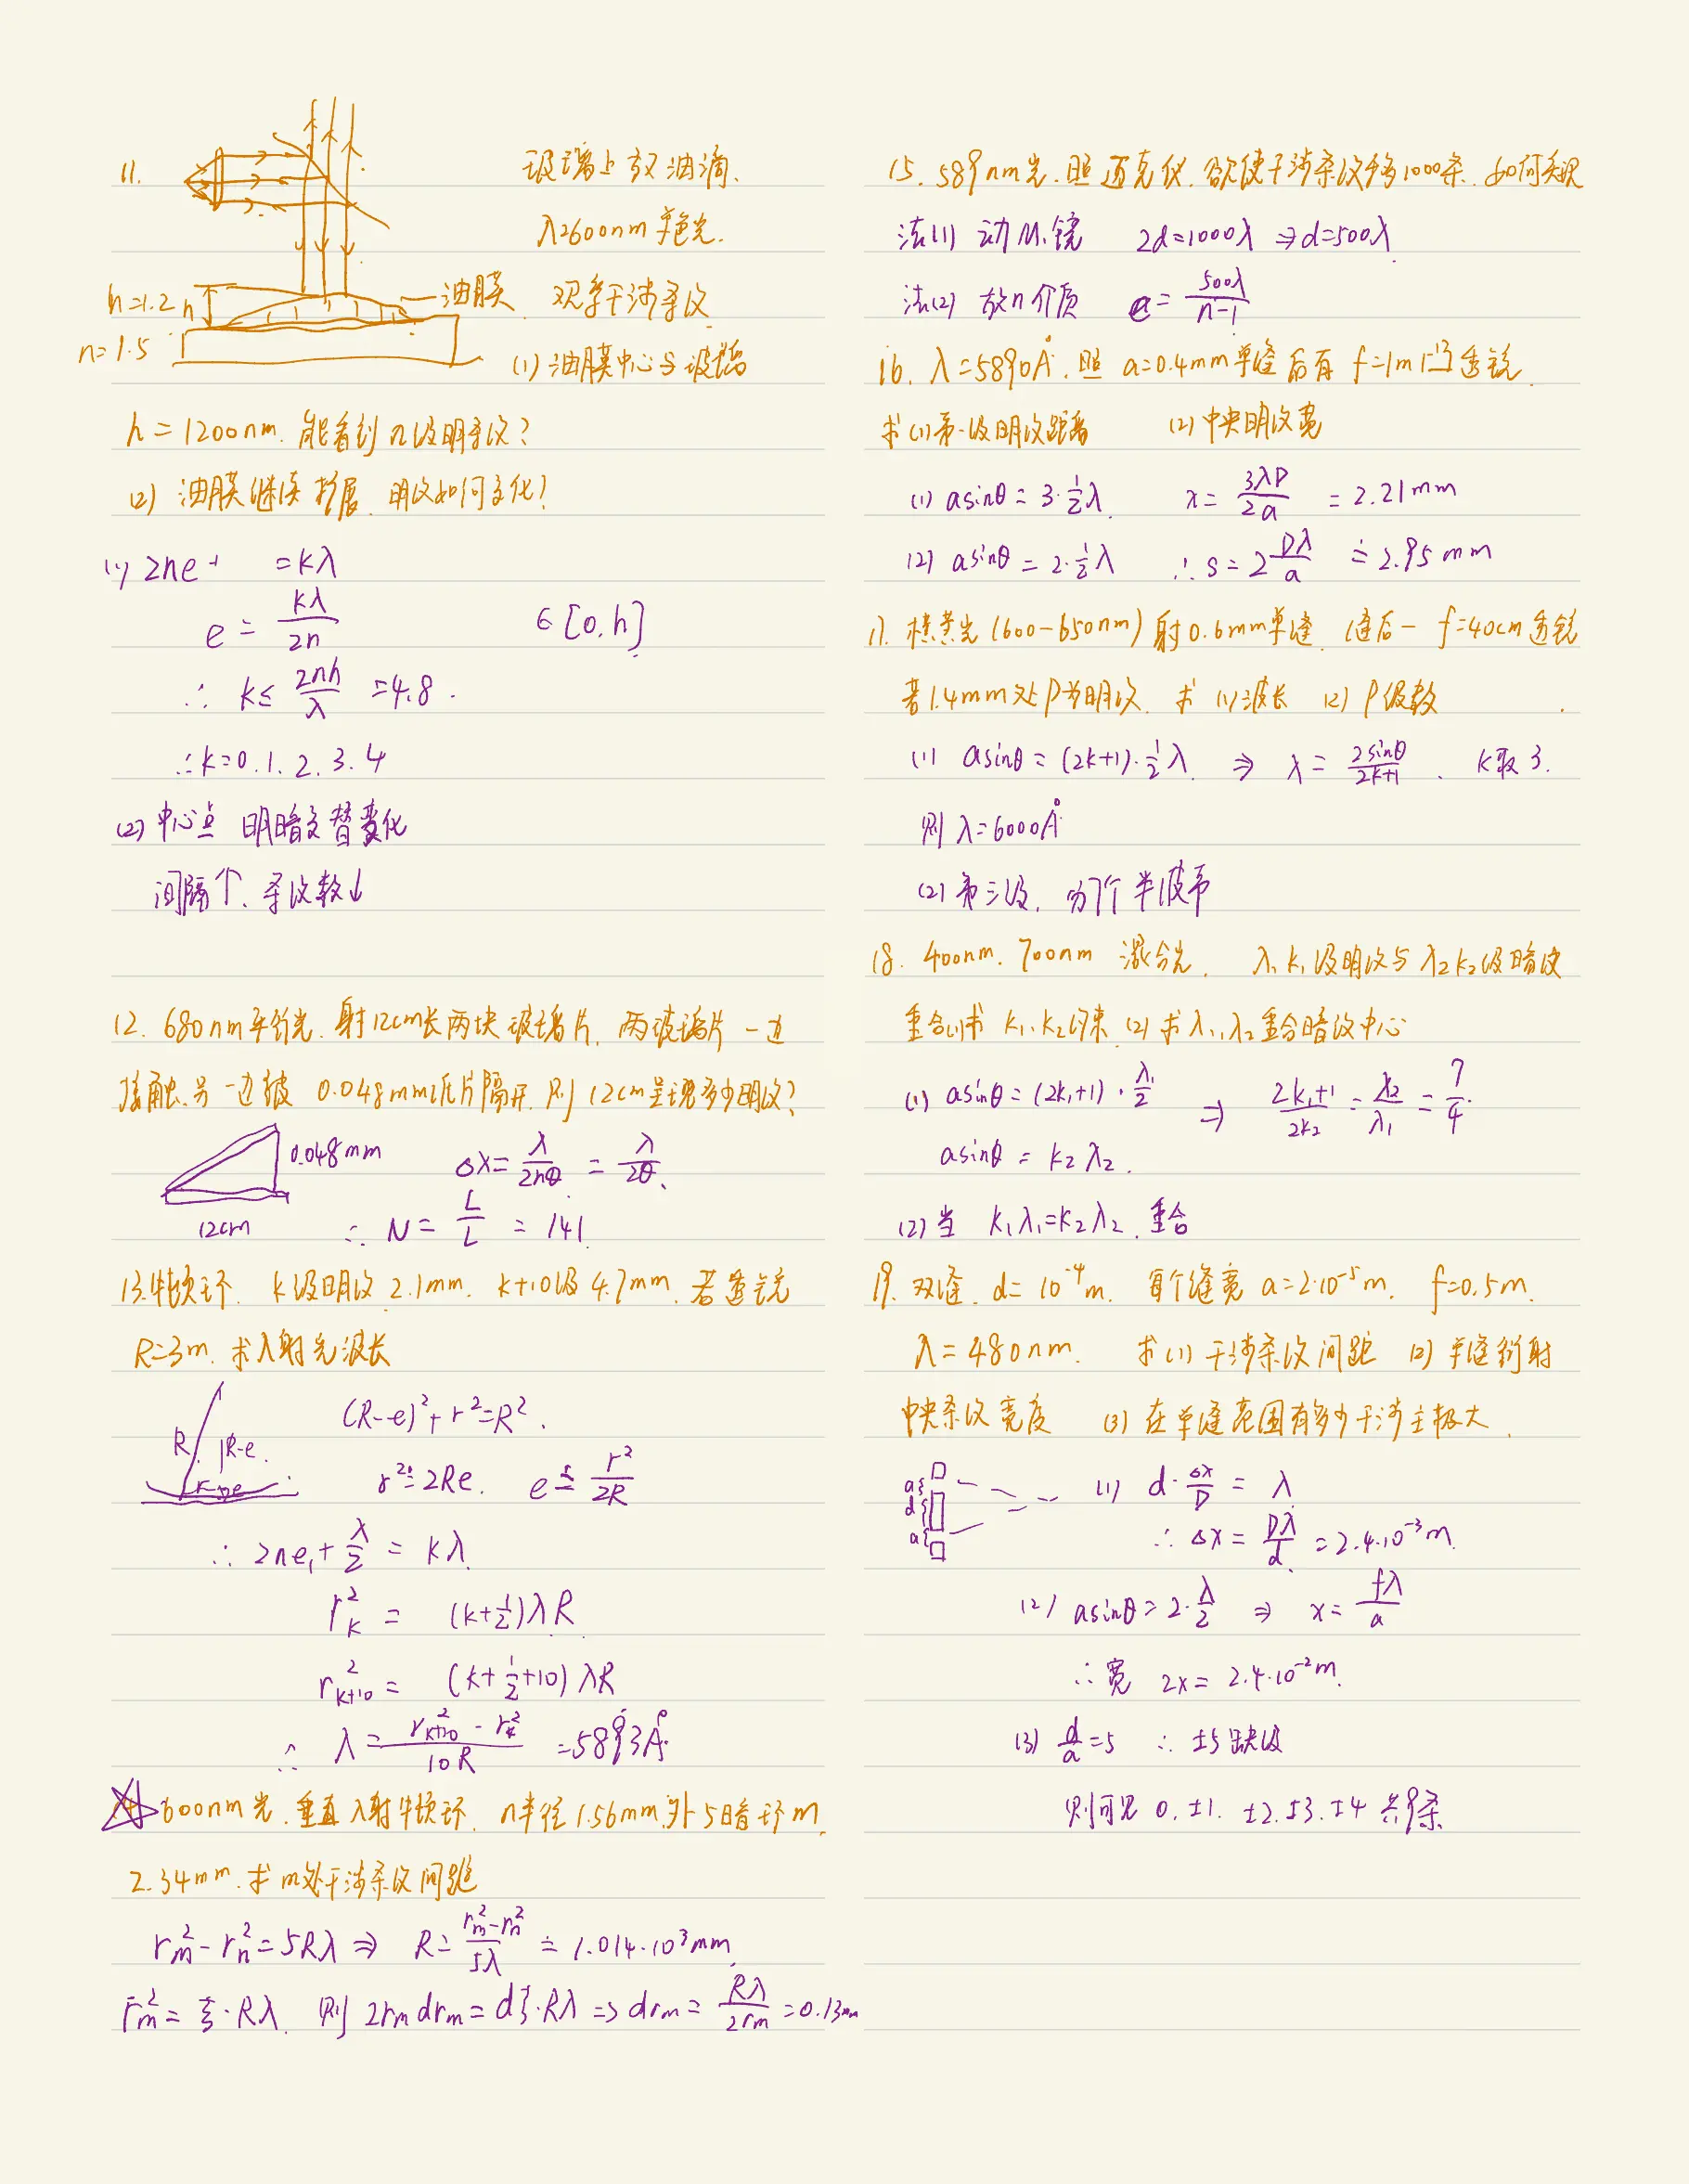 11.
玻璃上放油滴.
λ=600nm单色光.
n=1.2 h
油膜 观察干涉条纹
n=1.5
(1) 油膜中心与玻璃
h=1200nm. 能看到n级明条纹?
(2) 油膜继续扩展. 明纹如何变化?
(1) 2ne+ =kλ
e = kλ/2n ∈[0.h]
∴ k≤ 2nh/λ =4.8.
∴k=0.1.2.3.4
(2) 中心点 明暗交替变化
间隔↑. 条纹数↓
12. 680nm平行光. 射12cm长两块玻璃片. 两玻璃片一边
接触.另一边被 0.048mm纸片隔开. 则12cm呈现多少明纹?
0.048mm
12cm
Δx= λ/2nθ = λ/2θ.
∴ N = L/L = 141
13.牛顿环. k级明纹 2.1mm. k+10级 4.7mm. 若透镜
R=3m. 求入射光波长
R R-e r e
(R-e)²+r²=R².
r²≐2Re. e≐ r²/2R
∴ 2ne₁+ λ/2 = kλ
r_k² = (k+1/2)λR
r_{k+10}² = (k+1/2+10)λR
∴ λ= (r_{k+10}²-r_k²)/10R =5893Å
600nm光.垂直入射牛顿环. n半径1.56mm.外5暗环m
2.34mm.求m处干涉条纹间距
r_m²-r_n²=5Rλ ⇒ R= (r_m²-r_n²)/5λ ≐ 1.014·10³mm
r_m²= ξ·Rλ. 则 2r_m dr_m = dξ·Rλ ⇒ dr_m = Rλ/2r_m =0.13mm
15. 589nm光.照迈克仪.欲使干涉条纹移1000条.如何实现
法(1) 动M₁镜 2d=1000λ ⇒d=500λ
法(2) 放n介质 e= 500λ/n-1
16. λ=5890Å.照 a=0.4mm单缝 后有 f=1m凸透镜.
求(1)第一级明纹距离 (2)中央明纹宽
(1) asinθ=3·1/2λ. x= 3λD/2a = 2.21mm
(2) asinθ = 2·1/2λ ∴ s=2Dλ/a ≐2.95mm
17. 橙黄光(600-650nm)射0.6mm单缝. 缝后一 f=40cm透镜
若1.4mm处P为明纹. 求 (1)波长 (2) P级数
(1) asinθ=(2k+1)·1/2λ ⇒ λ= 2sinθ/2k+1. k取3.
则λ=6000Å
(2)第三级. 分7个半波带
18. 400nm.700nm 混合光. λ₁k₁级明纹与λ₂k₂级暗纹
重合(1)求 k₁.k₂约束 (2) 求λ₁.λ₂重合暗纹中心
(1) asinθ=(2k₁+1)·λ₁/2 ⇒ 2k₁+1/2k₂ = λ₂/λ₁ = 7/4
asinθ = k₂λ₂.
(2)当 k₁λ₁=k₂λ₂.重合
19. 双缝. d=10⁻⁴m. 每个缝宽 a=2·10⁻⁵m. f=0.5m.
λ=480nm. 求(1)干涉条纹间距 (2)单缝衍射
中央条纹宽度 (3)在单缝范围有多少干涉主极大.
a d a
(1) d·Δx/D = λ
∴ Δx= Dλ/d =2.4·10⁻³m
(2) asinθ=2·λ/2 ⇒ x= fλ/a
∴宽 2x= 2.4·10⁻²m.
(3) d/a=5 ∴ ±5缺级
则可见 0.±1.±2.±3.±4 共9条